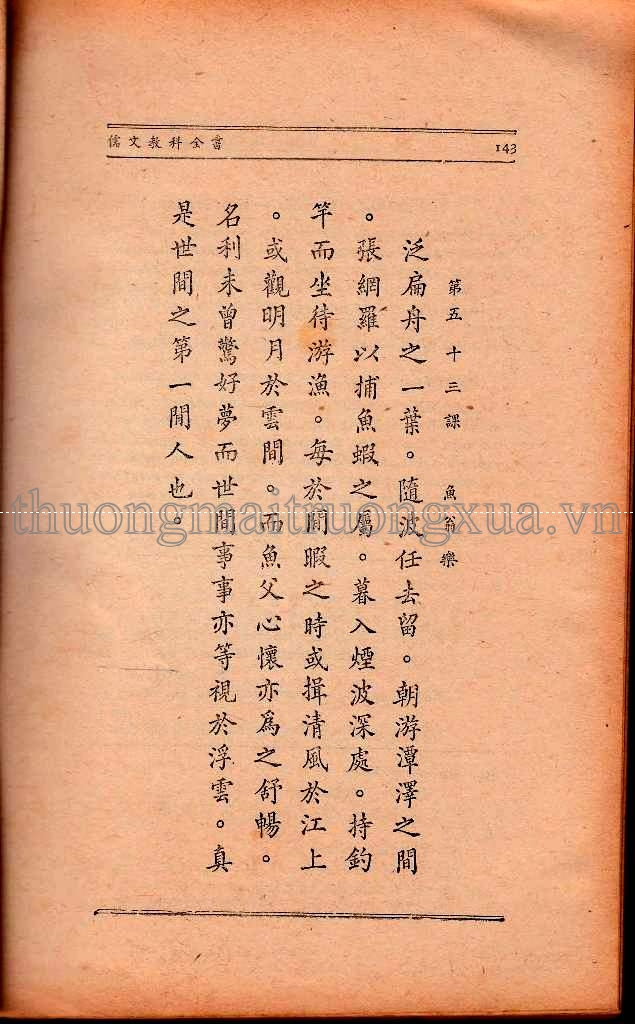 儒文教科全書
143
第五十三課 魚翁樂
泛扁舟之一葉。隨波任去留。朝游潭澤之間
。張網羅以捕魚蝦之屬。暮入煙波深處。持釣
竿而坐待游漁。每於閒暇之時或揖清風於江上
。或觀明月於雲間。而魚父心懷亦爲之舒暢。
名利未曾驚好夢而世間事事亦等視於浮雲。真
是世間之第一閒人也。
thuongmaitruongxua.vn